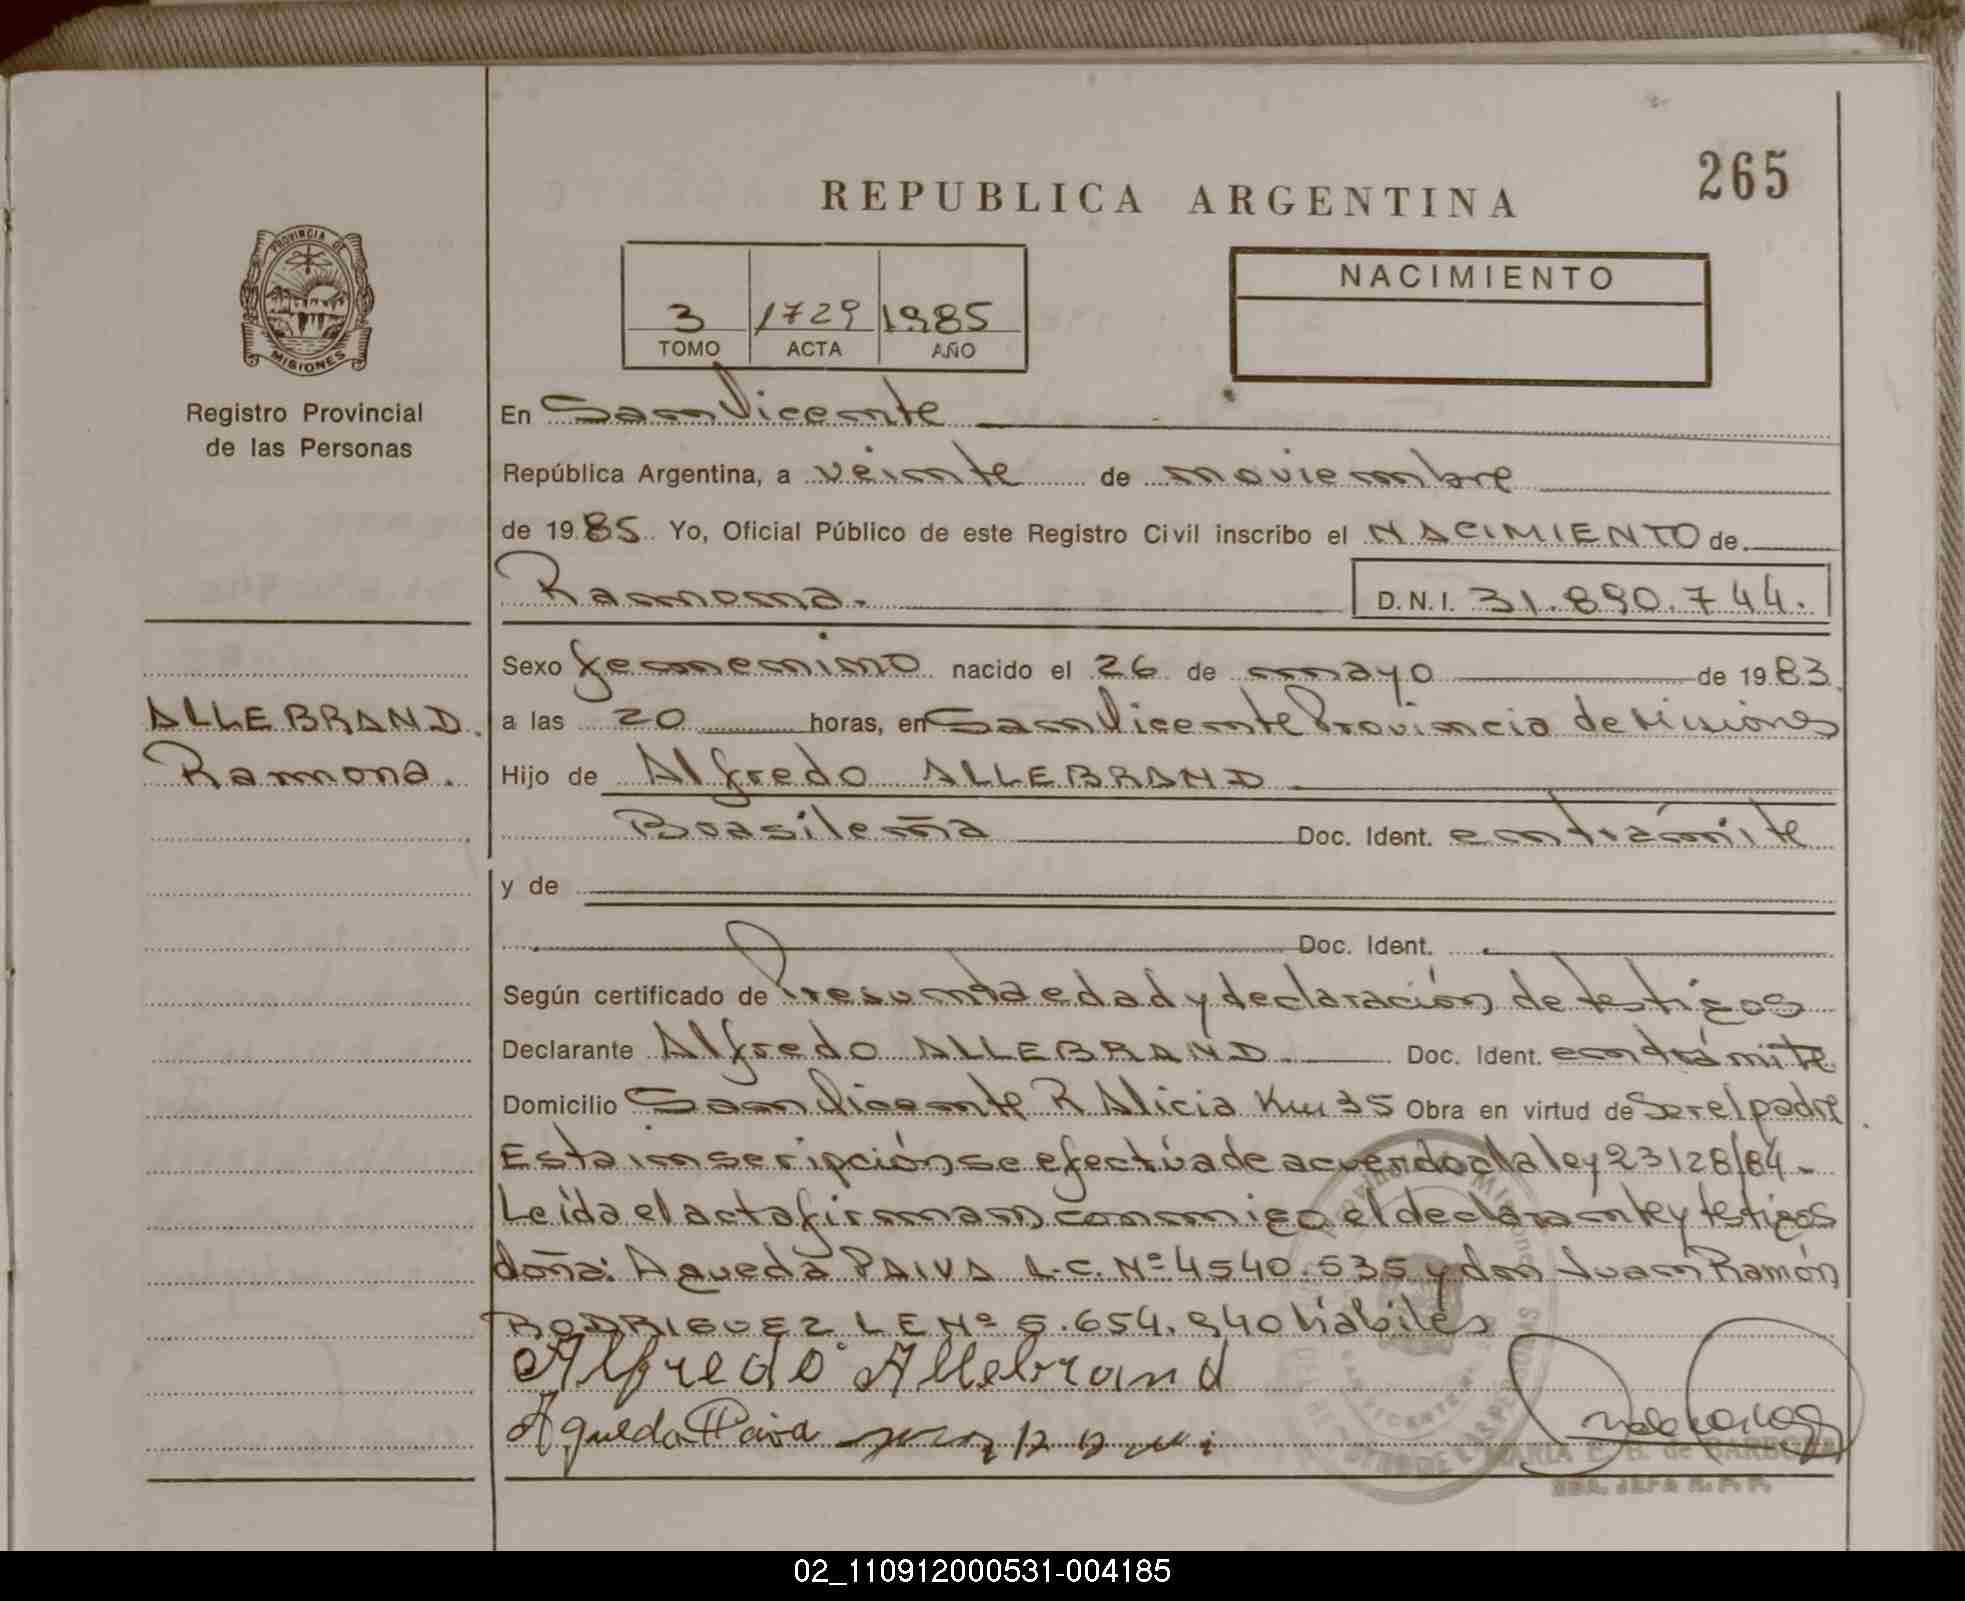 265
REPUBLICA ARGENTINA
PROVINCIA DE
MISIONES
3 1729 1985
TOMO ACTA AÑO
NACIMIENTO
Registro Provincial
de las Personas
En San Vicente
República Argentina, a veinte de noviembre
de 1985. Yo, Oficial Público de este Registro Civil inscribo el NACIMIENTO de
Ramona. D.N.I. 31.890.744.
Sexo femenino nacido el 26 de mayo de 1983
ALLEBRAND.
Ramona.
a las 20 horas, en San Vicente Provincia de Misiones
Hijo de Alfredo ALLEBRAND
Brasileña Doc. Ident. en trámite
y de
Doc. Ident.
Según certificado de Presunta edad y declaración de testigos
Declarante Alfredo ALLEBRAND Doc. Ident. en trámite
Domicilio San Vicente R Alicia Km 35 Obra en virtud de Ser el padre
Esta inscripción se efectúa de acuerdo a la ley 23128/84.
Leída el acta firman conmigo el declarante y testigos
doña: Agueda PAIVA L.C. Nº 4540.535 y don Juan Ramón
RODRIGUEZ LE Nº 5.654.940 hábiles
Alfredo Allebrand
Agueda Paiva
02_110912000531-004185